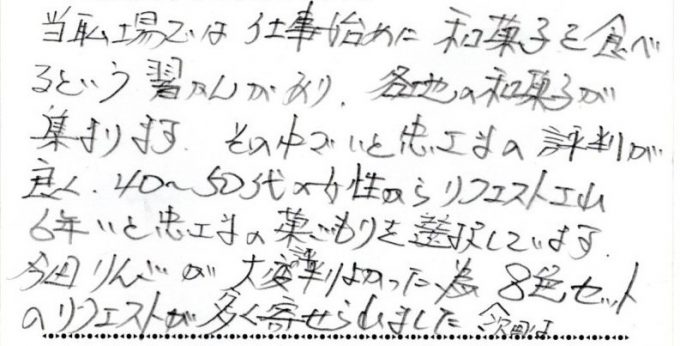 当職場では仕事始めに和菓子を食べ
るという習かんがあり、各地の和菓子が
集まります。その中でいと忠さまの評判が
良く、40〜50代女性からリクエストされ
6年いと忠さまの巣ごもりを選択しています。
今回りんごが大変評判よかった為8色セット
のリクエストが多く寄せられました 次回は